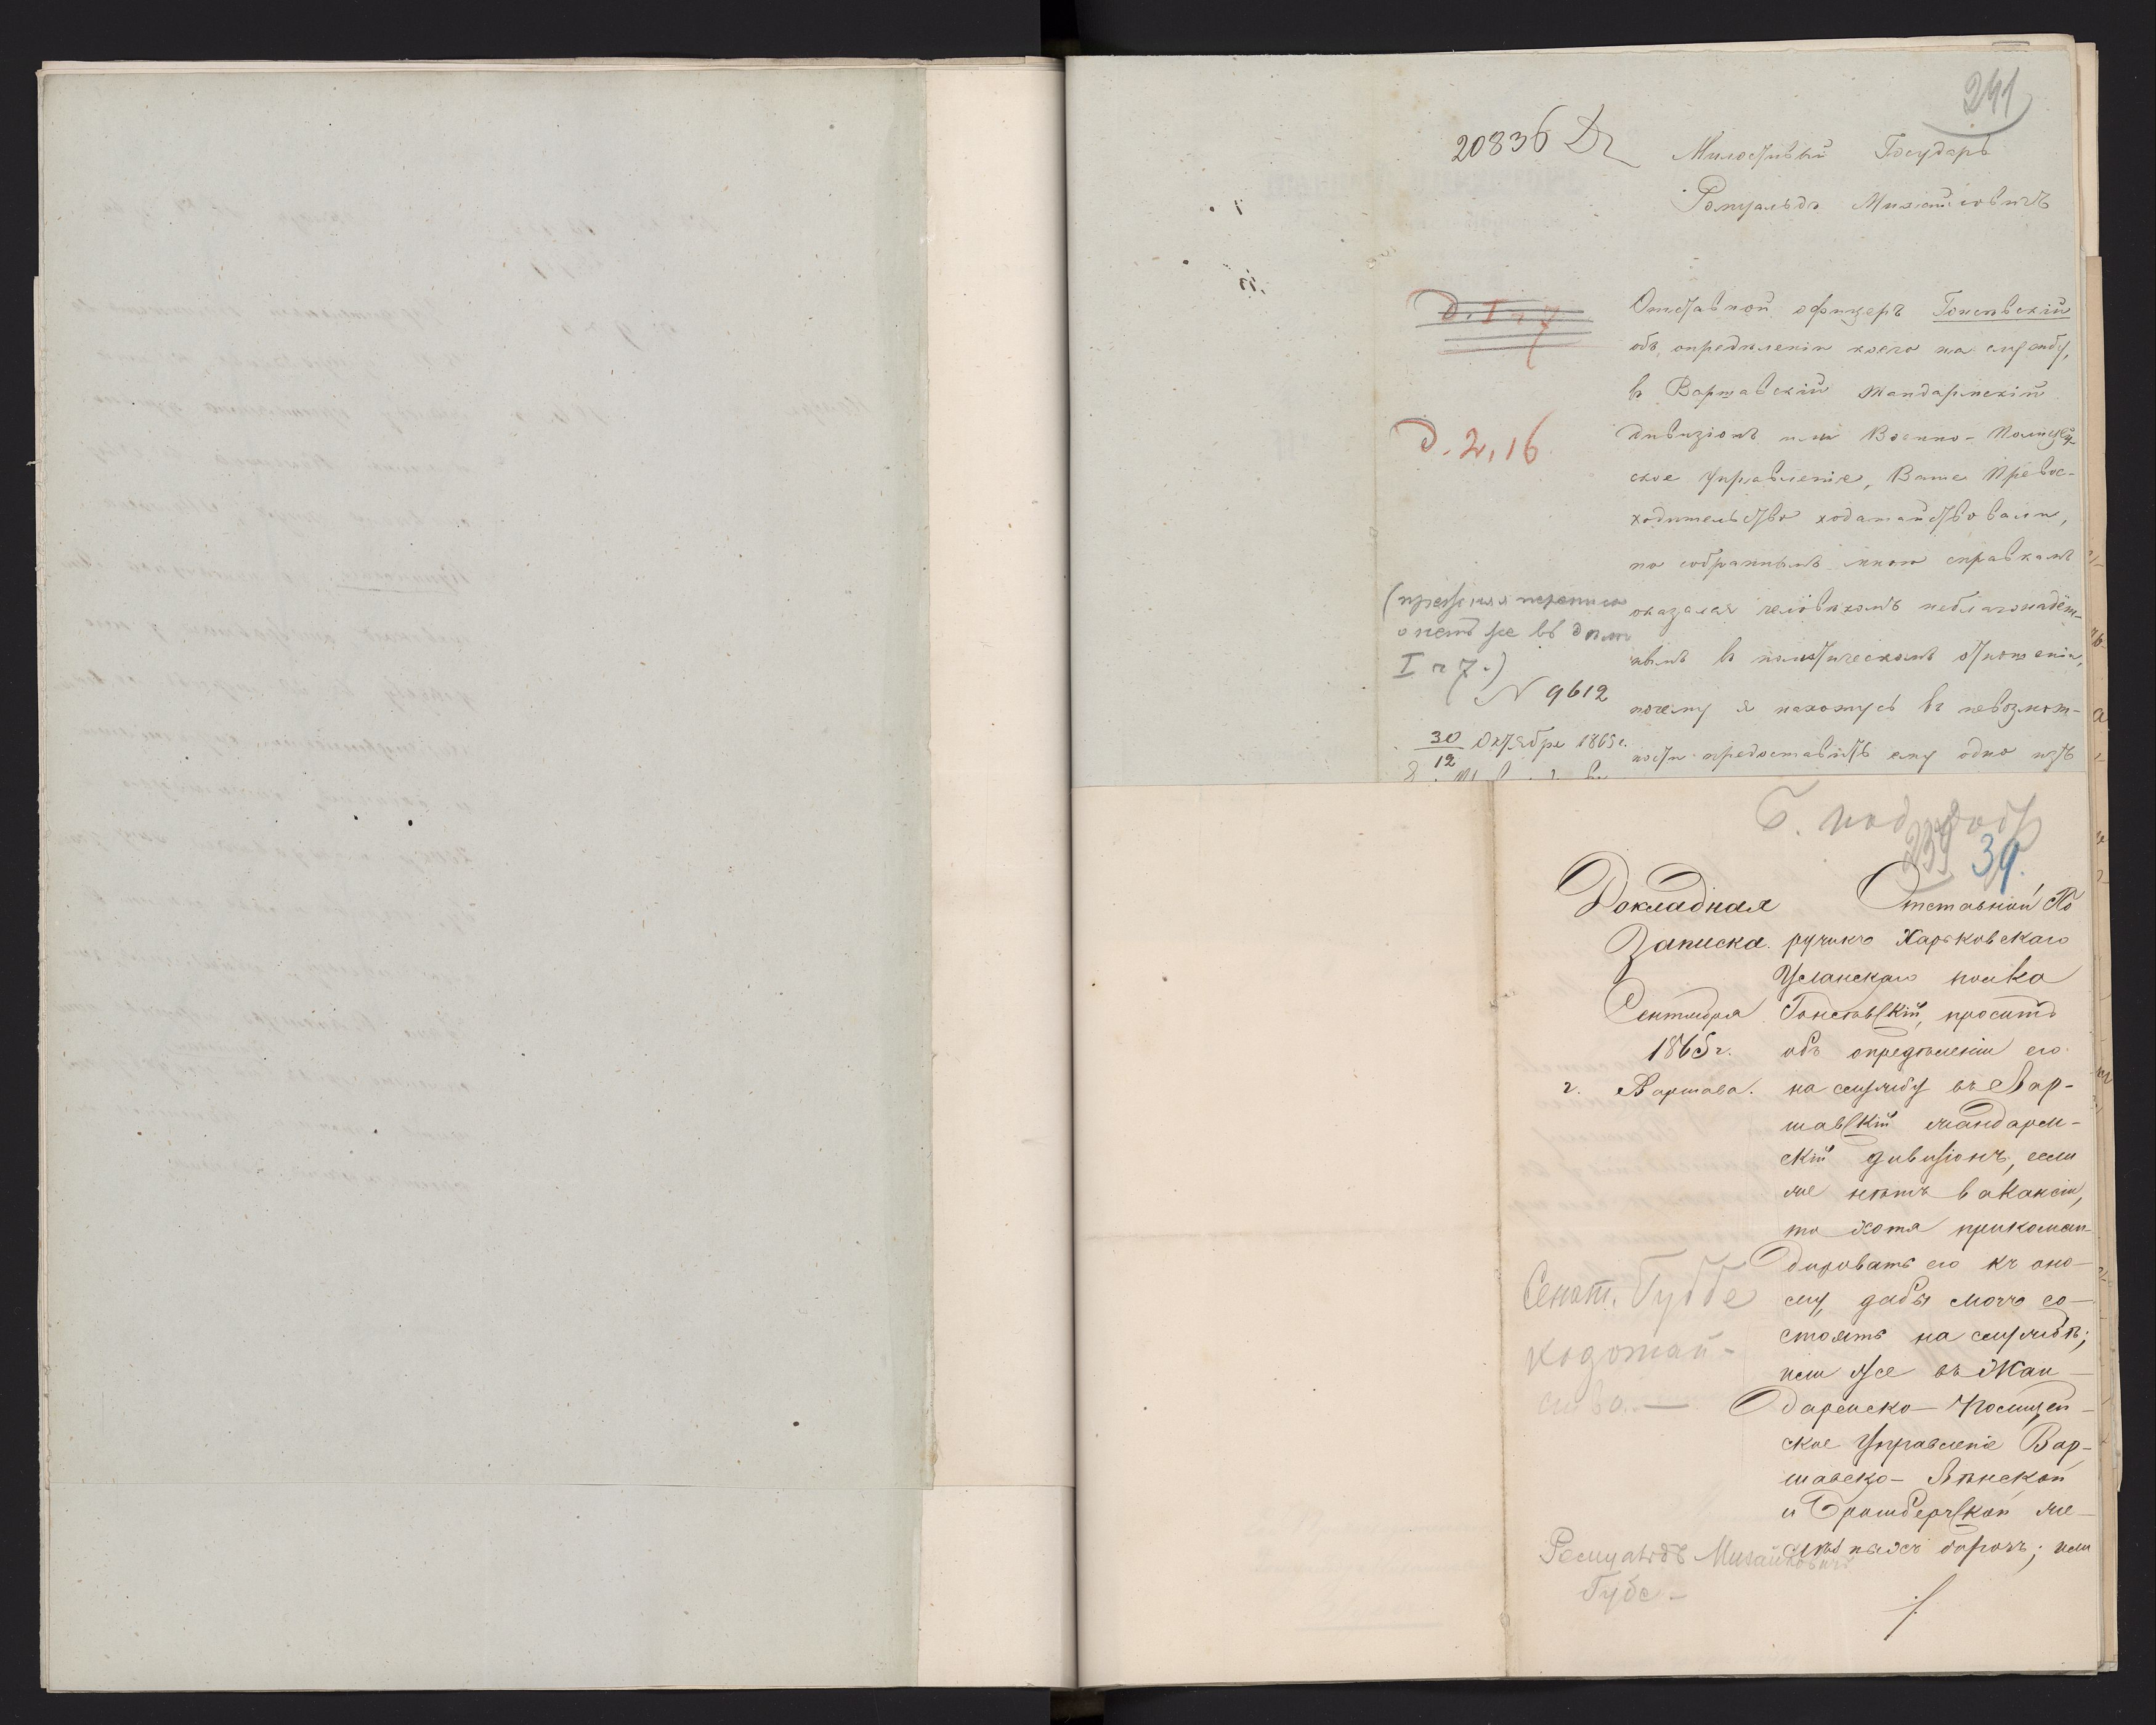 241
20836
Милостивый Государь
Ромуальдъ Михайловичъ
Д. I n 7
Отставной офицеръ Гонсѣвскій
объ опредѣленіи коего на службу,
въ Варшавскій Жандармскій
Дивизіонъ или Военно-Полицей-
ское Управленіе, Ваше Превос-
ходительство ходатайствовали,
по собраннымъ мною справкамъ
оказался человѣкомъ неблагонадёж-
нымъ въ политическомъ отношеніи,
почему я нахожусь въ невозмож-
ности предоставить ему одно изъ
д. 2, 16
(прежняя переписка
о немъ же въ дѣлѣ
I n 7.)
N 9612
30/12 Октября 1865 г.
39.
Докладная
Записка.
Сентября
1865 г.
г. Варшава.
Отставной По
ручикъ Харьковскаго
Уланскаго полка
Гонсѣвскій, проситъ
объ опредѣленіи его
на службу въ Вар-
шавскій жандарм-
скій дивизіонъ, если
же нѣтъ вакансіи,
то хотя прикоман-
дировать его къ оно-
му, дабы могъ со-
стоять на службѣ;
или же въ Жан-
дармско-Полицей-
ское Управленіе Вар-
шавско-Вѣнской
и Бромбергской же-
лѣзныхъ дорогъ; или
Сенат. Губе
ходатай-
ство.—
Ромуальдъ Михайловичъ
Губе —